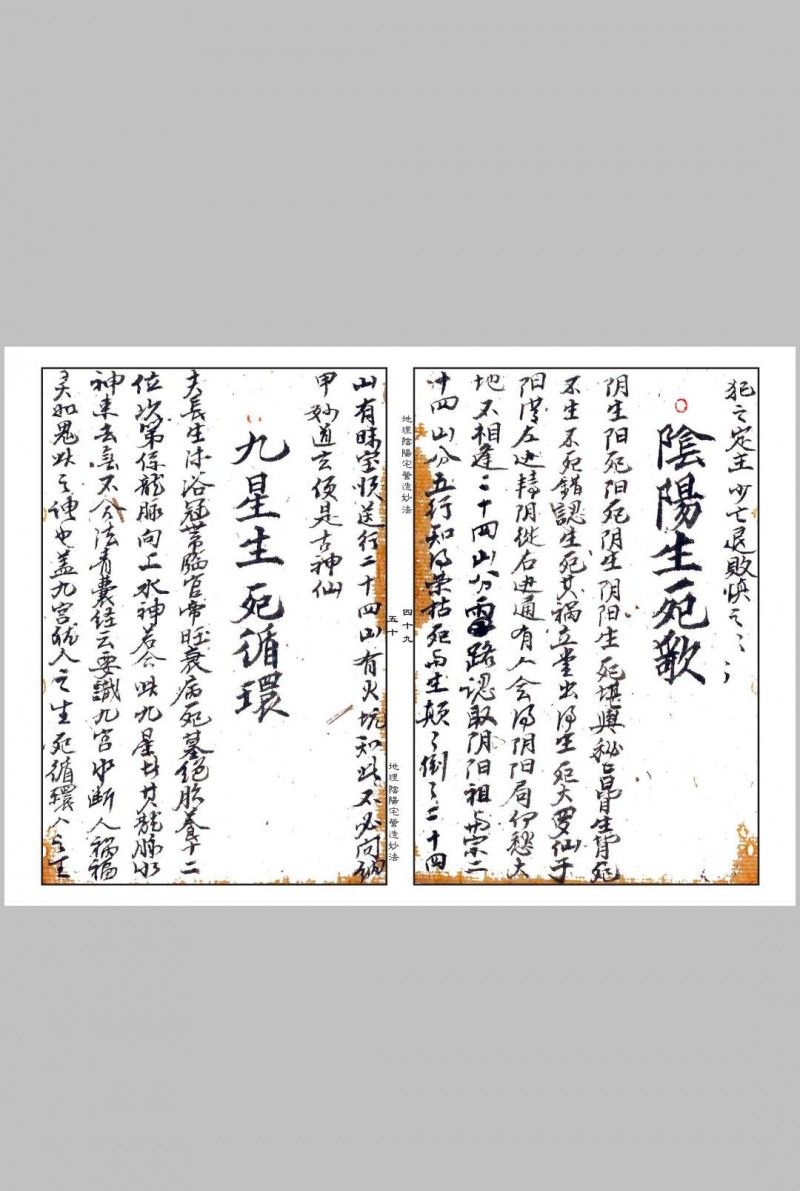 犯之定主少亡退敗慎之々々
陰陽生死歌
阴生阳死阳死阴生阴阳生死堪輿秘旨皆生皆死
不生不死錯認生死其禍立堂出得生死大罗仙于
阳從左边轉阴從右边通有人会得阴阳局何愁大
地不相逢二十四山分两路認取阴阳祖与宗二
十四山分五行知得荣枯死与生颠々倒々二十四
山有昧宝順逆行二十四山有火坑知此不必问納
甲妙道玄便是古神仙
九星生死循環
夫長生沐浴冠带臨官帝旺衰病死墓絕胎養十二
位次第依龍脉向上水神若合此九星其龍脉水
神来去無不合法青囊経云要識九宮中断人禍福
灵如鬼此之使也盖九宮犹人之生死循環人之生
地理陰陽宅營造妙法
四十九
五十
地理陰陽宅營造妙法